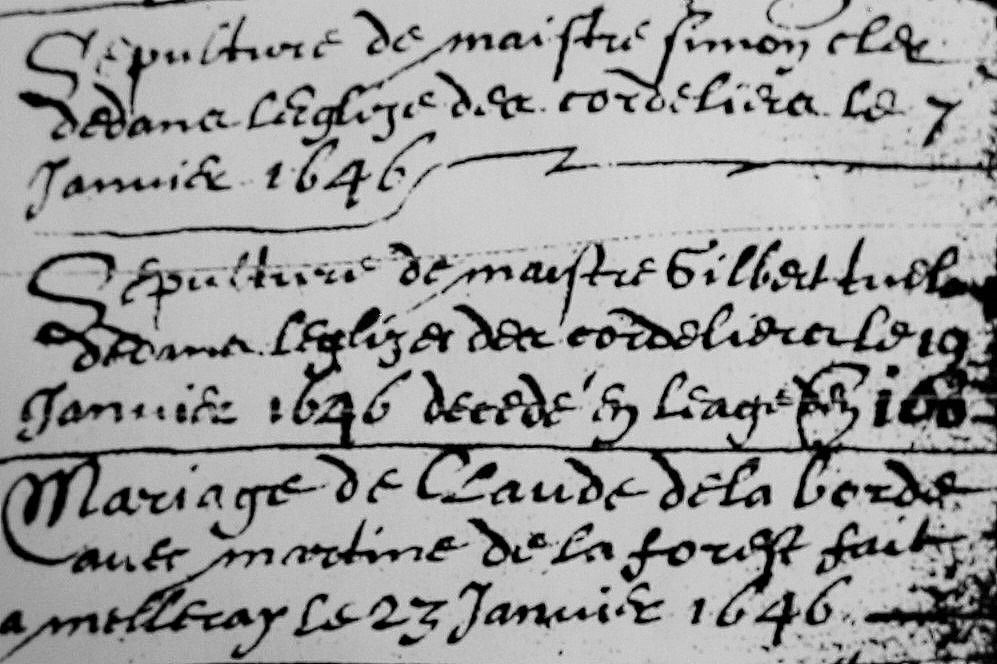 Sepulture de maistre simon cler
dedans leglize des cordeliers le 7
Janvier 1646
Sepulture de maistre Gilbert
dedans leglizes des cordeliers le 19
Janvier 1646 decedé en leage de 100
Mariage de Claude de la borde
avec martine de la forest fait
a melleray le 23 Janvier 1646